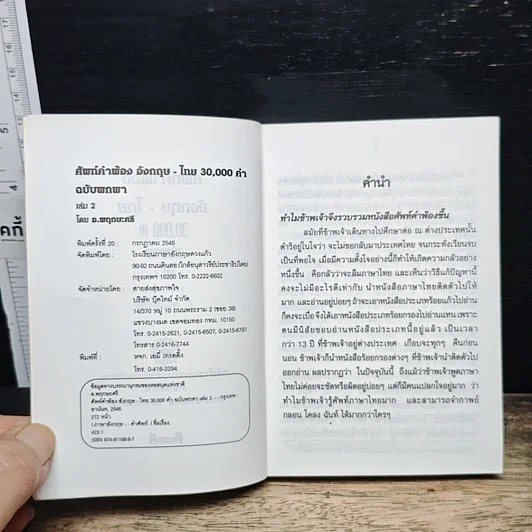 ศัพท์คำพ้อง อังกฤษ - ไทย 30,000 คำ
ฉบับพกพา
เล่ม 2
โดย อ.พฤกษะศรี
พิมพ์ครั้งที่ 20 : กรกฎาคม 2546
จัดพิมพ์โดย : โรงเรียนภาษาอังกฤษดวงแก้ว
90-92 ถนนดินสอ (ใกล้อนุสาวรีย์ประชาธิปไตย)
กรุงเทพฯ 10200 โทร. 0-2222-6602
จัดจำหน่ายโดย : สายส่งสุขภาพใจ
บริษัท บุ๊คไทม์ จำกัด
14/370 หมู่ 10 ถนนพระราม 2 (ซอย 38)
แขวงบางมด เขตจอมทอง กทม. 10150
โทร. 0-2415-2621, 0-2415-6507, 0-2415-6797
โทรสาร 0-2416-7744
พิมพ์ที่ : หจก. เอมี่ เทรดดิ้ง
โทร. 0-416-3294
ข้อมูลทางบรรณานุกรมของหอสมุดแห่งชาติ
อ.พฤกษะศรี
ศัพท์คำพ้อง อังกฤษ - ไทย 30,000 คำ ฉบับพกพา เล่ม 2. - - กรุงเทพ
อานันท, 2546
272 หน้า.
1.ภาษาอังกฤษ - - คำศัพท์. I.ชื่อเรื่อง.
423.1
ISBN 974-91168-9-7
คำนำ
ทำไมข้าพเจ้าจึงรวบรวมหนังสือศัพท์คำพ้องขึ้น
สมัยที่ข้าพเจ้าเดินทางไปศึกษาต่อ ณ ต่างประเทศนั้น
ดำริอยู่ในใจว่า จะไม่ขอกลับมาประเทศไทย จนกระทั่งเรียนจบ
เป็นที่พอใจ เมื่อมีความตั้งใจอย่างนี้ก็ทำให้เกิดความกลัวอย่าง
หนึ่งขึ้น คือกลัวว่าจะลืมภาษาไทย และเห็นว่าวิธีแก้ปัญหานี้
คงจะไม่มีอะไรดีเท่ากับ นำหนังสือภาษาไทยติดตัวไปให้
มาก และอ่านอยู่บ่อยๆ ถ้าจะเอาหนังสือประเภทร้อยแก้วไปอ่าน
ก็คงจะเบื่อ จึงได้เอาหนังสือประเภทร้อยกรองไปอ่านแทน เพราะ
ตนมีนิสัยชอบอ่านหนังสือประเภทนี้อยู่แล้ว เป็นเวลา
กว่า 13 ปี ที่ข้าพเจ้าอยู่ต่างประเทศ เกือบจะทุกๆ คืนก่อน
นอน ข้าพเจ้าก็นำหนังสือร้อยกรองต่างๆ ที่ข้าพเจ้านำติดตัวไป
ออกอ่าน ผลปรากฏว่า ในปัจจุบันนี้ ถึงแม้ว่าข้าพเจ้าพูดภาษา
ไทยไม่ค่อยจะชัดหรือผิดอยู่บ่อยๆ แต่ก็มีคนแปลกใจอยู่มาก ว่า
ทำไมข้าพเจ้ารู้ศัพท์ภาษาไทยมาก และสามารถจำกาพย์
กลอน โคลง ฉันท์ ได้มากกว่าใครๆ